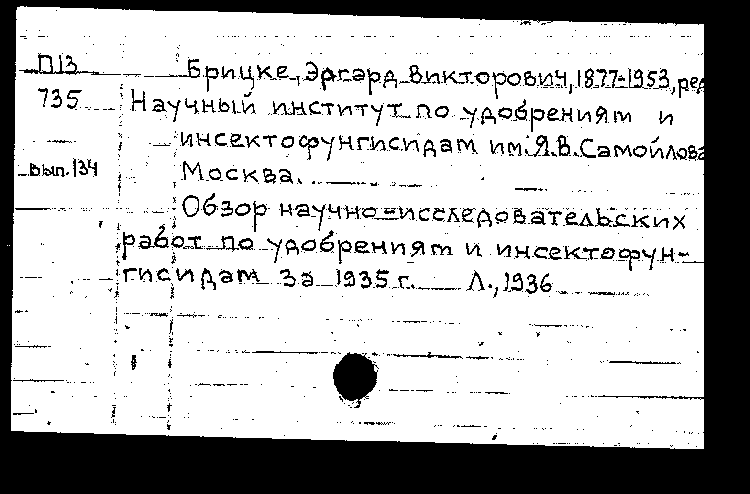 П13 Брицке, Эргард Викторович, 1877-1953, ред
735 Научный институт по удобрениям и
инсектофунгисидам им. Я.В. Самойлова
вып. 134 Москва.
Обзор научно-исследовательских
работ по удобрениям и инсектофун-
гисидам за 1935 г. Л., 1936